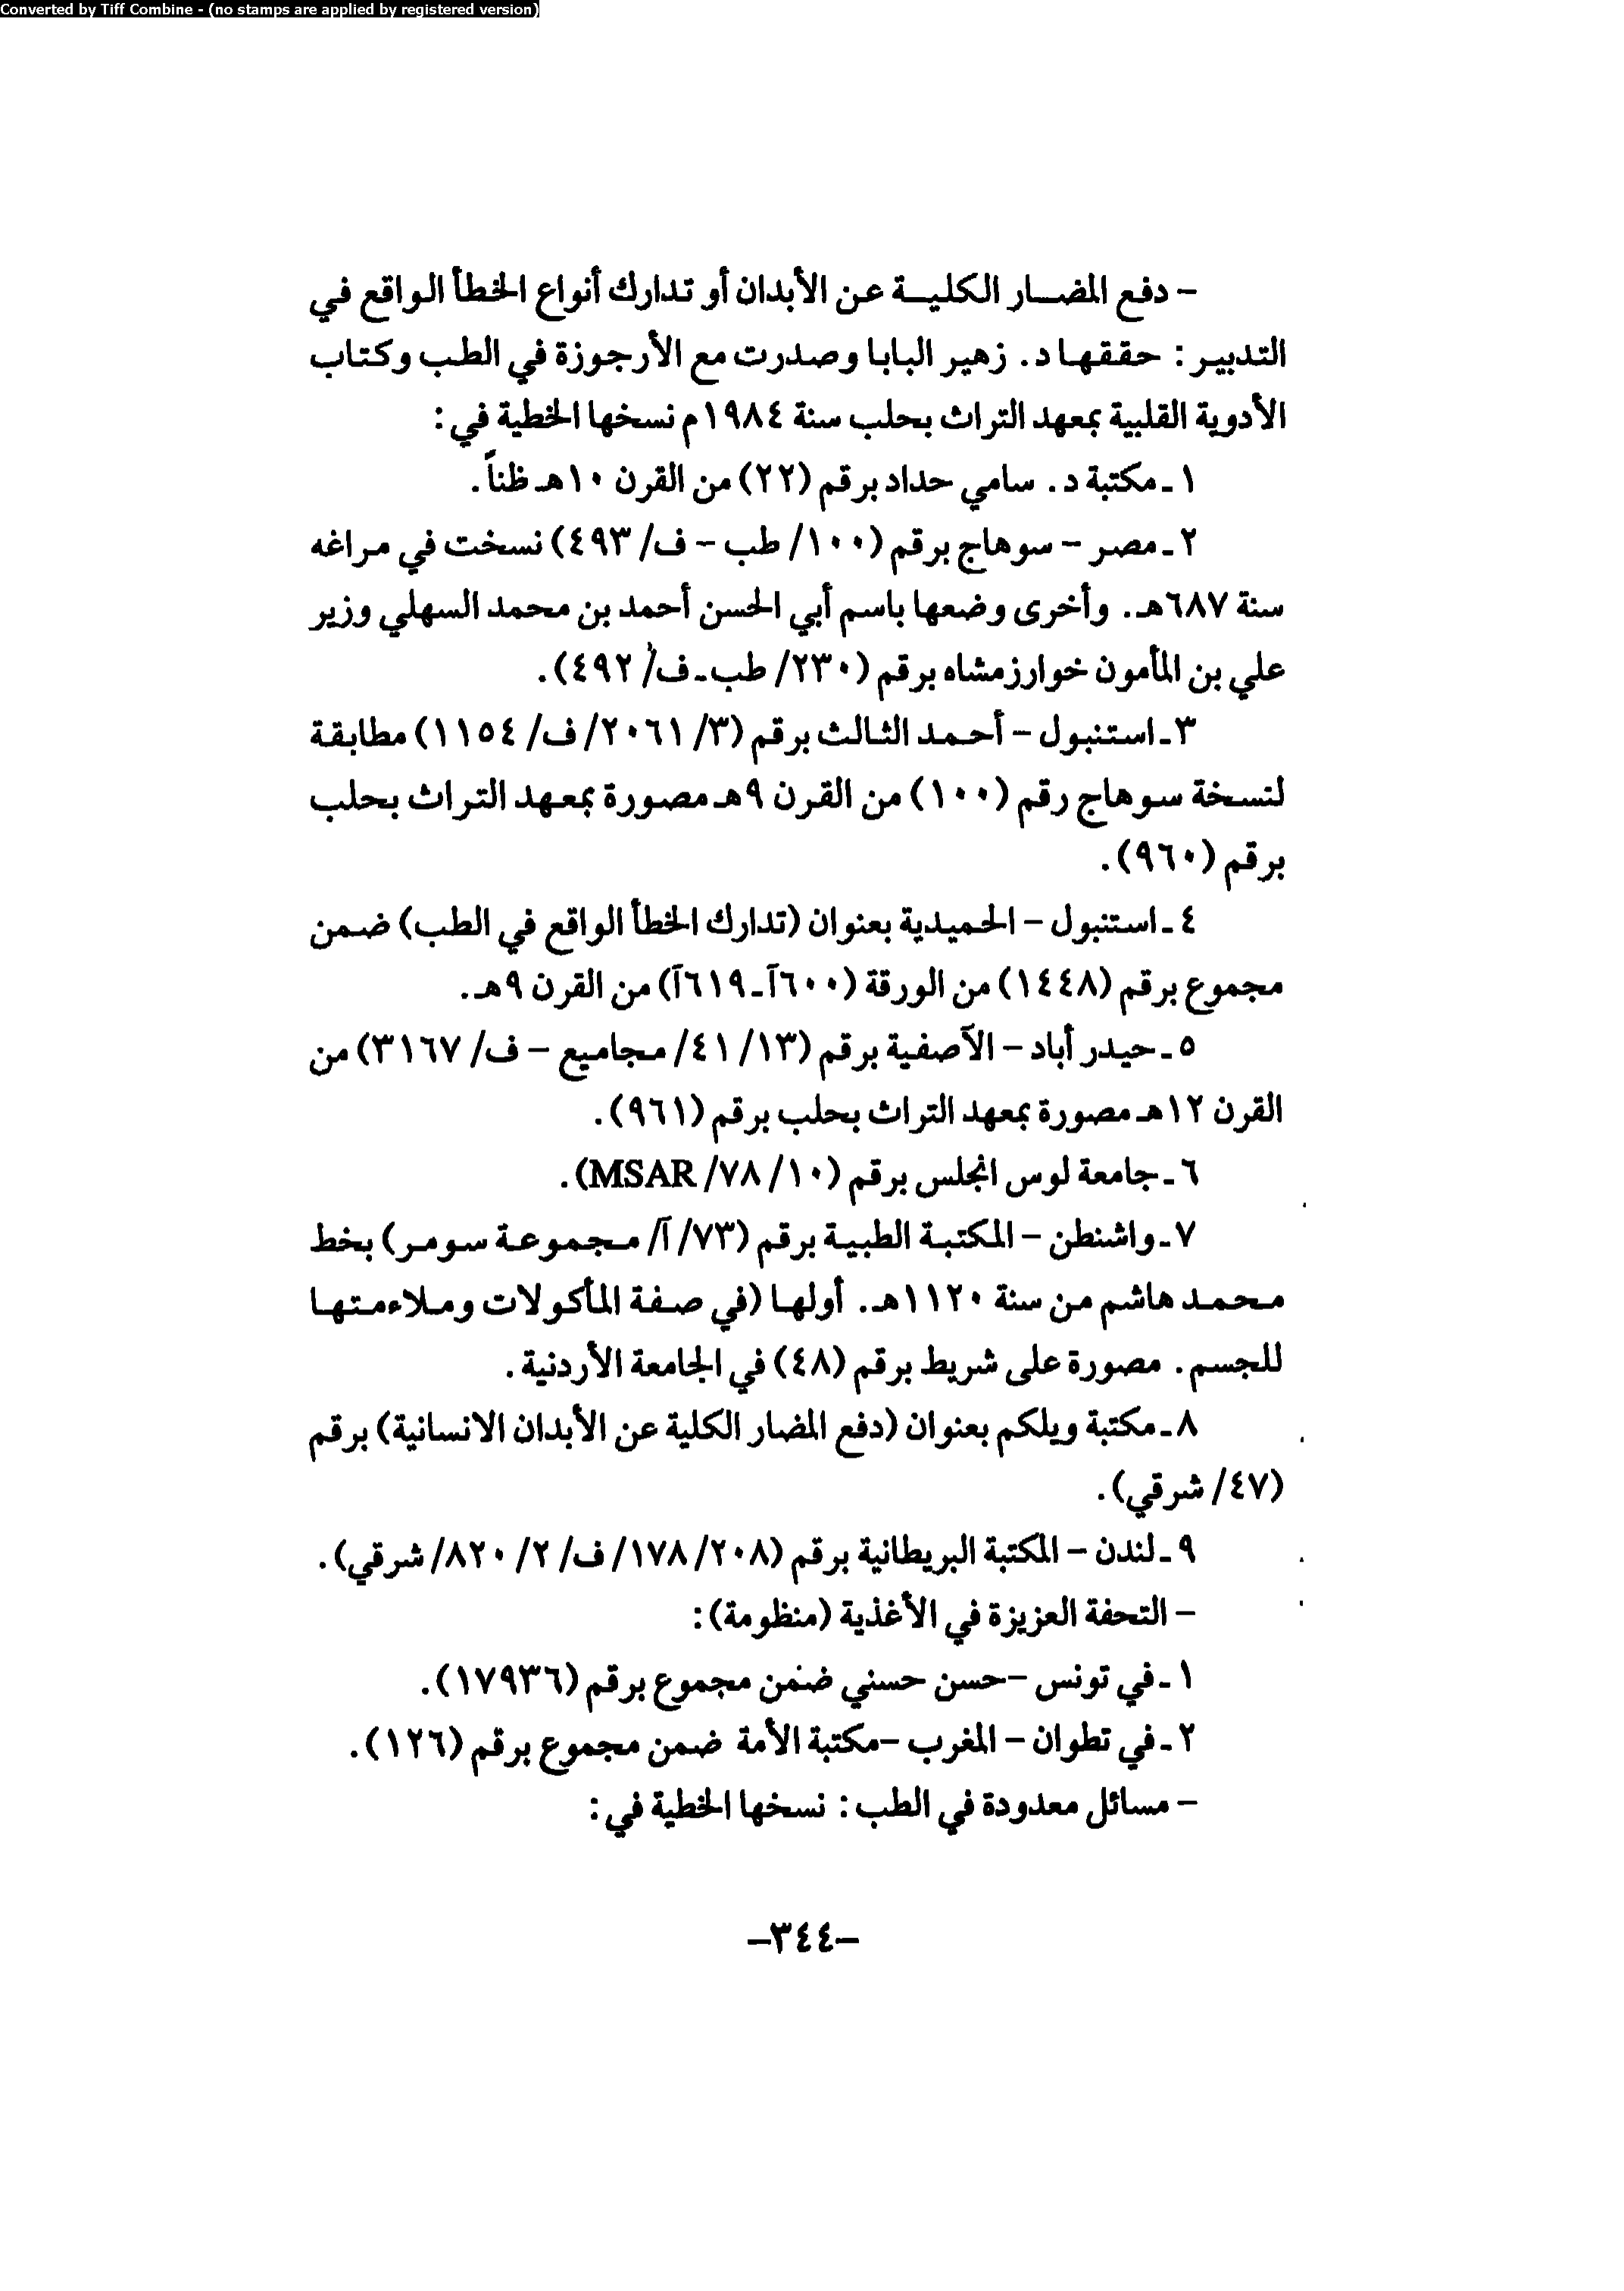 Converted by Tiff Combine - (no stamps are applied by registered version)
– دفع المضار الكلية عن الأبدان أو تدارك أنواع الخطأ الواقع في
التدبير: حققها د. زهير البابا وصدرت مع الأرجوزة في الطب وكتاب
الأدوية القلبية بمعهد التراث بحلب سنة ١٩٨٤م نسخها الخطية في:
١ـ مكتبة د. سامي حداد برقم (٢٢) من القرن ١٠هـ ظناً.
٢ـ مصر – سوهاج برقم (١٠٠/ طب – ف/ ٤٩٣) نسخت في مراغه
سنة ٦٨٧هـ. وأخرى وضعها باسم أبي الحسن أحمد بن محمد السهلي وزير
علي بن المأمون خوارزمشاه برقم (٢٣٠/ طب ـ ف/ ٤٩٢).
٣ـ استنبول – أحمد الثالث برقم (٣/ ٢٠٦١/ ف/ ١١٥٤) مطابقة
لنسخة سوهاج رقم (١٠٠) من القرن ٩هـ مصورة بمعهد التراث بحلب
برقم (٩٦٠).
٤ـ استنبول – الحميدية بعنوان (تدارك الخطأ الواقع في الطب) ضمن
مجموع برقم (١٤٤٨) من الورقة (٦٠٠آ ـ ٦١٩آ) من القرن ٩هـ.
٥ـ حيدر أباد – الآصفية برقم (١٣/ ٤١/ مجاميع – ف/ ٣١٦٧) من
القرن ١٢هـ مصورة بمعهد التراث بحلب برقم (٩٦١).
٦ـ جامعة لوس انجلس برقم (١٠/ ٧٨/ MSAR).
٧ـ واشنطن – المكتبة الطبية برقم (٧٣/ آ/ مجموعة سومر) بخط
محمد هاشم من سنة ١١٢٠هـ. أولها (في صفة المأكولات وملاءمتها
للجسم. مصورة على شريط برقم (٤٨) في الجامعة الأردنية.
٨ـ مكتبة ويلكم بعنوان (دفع المضار الكلية عن الأبدان الانسانية) برقم
(٤٧/ شرقي).
٩ـ لندن – المكتبة البريطانية برقم (٢٠٨/ ١٧٨/ ف/ ٢/ ٨٢٠/ شرقي).
– التحفة العزيزة في الأغذية (منظومة):
١ـ في تونس – حسن حسني ضمن مجموع برقم (١٧٩٣٦).
٢ـ في تطوان – المغرب – مكتبة الأمة ضمن مجموع برقم (١٢٦).
– مسائل معدودة في الطب: نسخها الخطية في:
–٣٤٤–